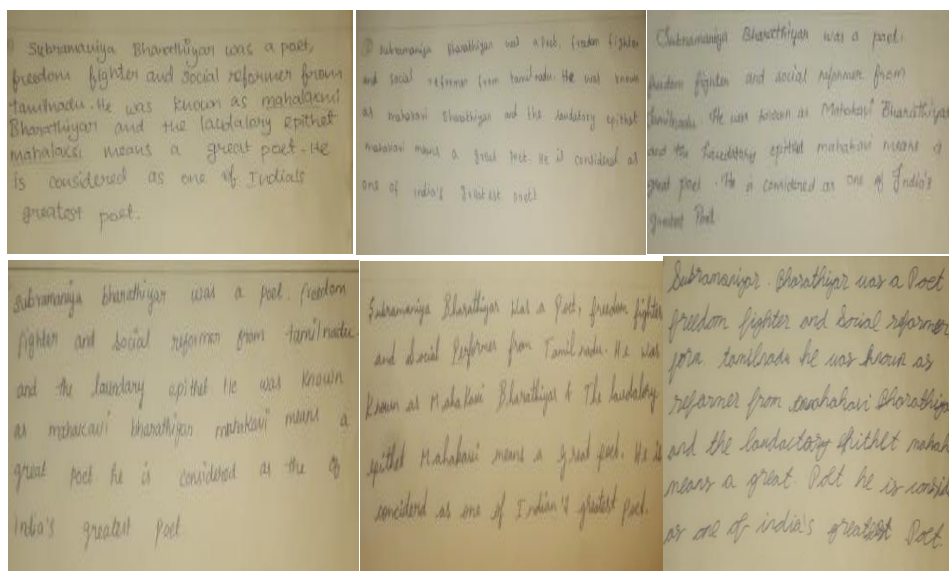 Subramaniya Bharathiyar was a poet,
freedom fighter and social reformer from
tamilnadu. He was known as mahalaxmi
Bharathiyar and the laudalary epithet
mahalaksi means a great poet. He
is considered as one of India's
greatest poet.
Subramaniya Bharathiyar was a poet, freedom fighter
and social reformer from tamilnadu. He was known
as mahakavi Bharathiyar and the laudatory epithet
mahakavi means a great poet. He is considered as
one of india's greatest poet
Subramaniya Bharathiyar was a poet,
freedom fighter and social reformer from
Tamilnadu. He was known as Mahakavi Bharathiyar
and the laudatory epithet mahakavi means a
great poet. He is considered as one of India's
greatest Poet
Subramaniya bharathiyar was a poet. freedom
fighter and social reformer from tamilnadu
and the laundary epithet He was known
as mahakavi bharathiyar mahakavi means a
great poet he is considered as the of
India's greatest poet
Subramaniya Bharathiyar was a Poet, freedom fighter
and social Performer from Tamilnadu. He was
Known as Mahakavi Bharathiyar & The laudalory
epithet Mahakavi means a great poet. He is
considerd as one of Indian's greatest poet.
Subramaniyar. Bharathiyar was a Poet
freedom fighter and social reformer
tamilnadu he was known as
reformer from Bharathiyar
and the landactory mahak
means a great. Poet he is consid
as one of india's greatest Poet.